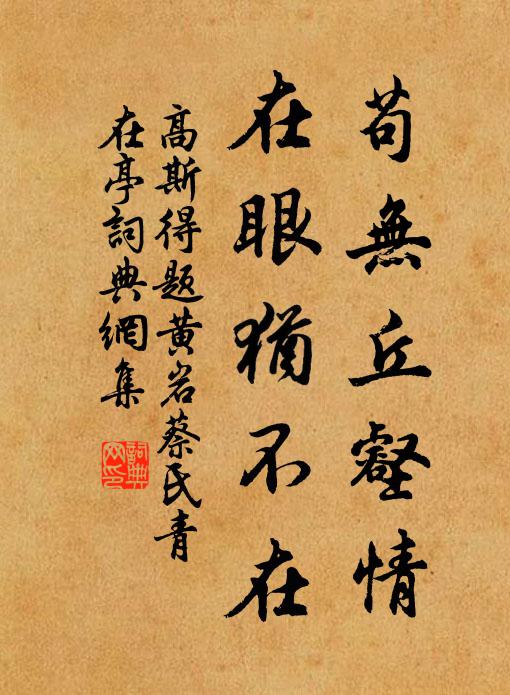 苟無丘壑情
在眼猶不在
高斯得題黄岩蔡氏青
在亭詞典網集
詞典
网印